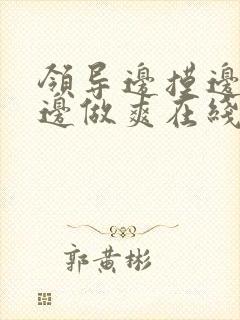 領导邊摸邊
邊做爽在綫
郭黄彬